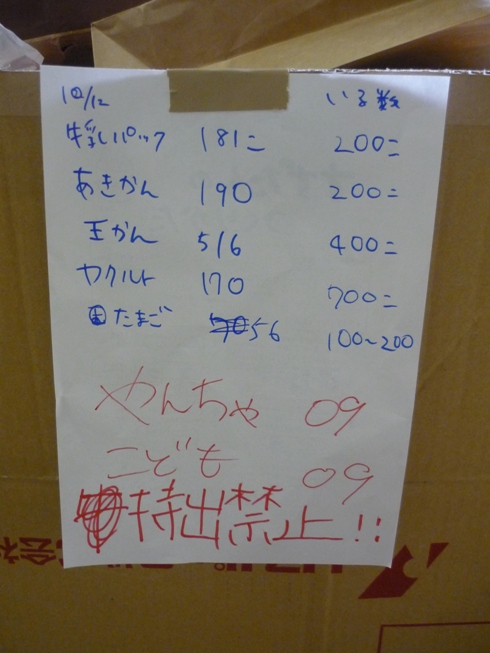 10/12 いる数
牛乳パック 181こ 200こ
あきかん 190 200こ
王かん 516 400こ
ヤクルト 170 700こ
たまご 56 100〜200
やんちゃ 09
こども 09
持出禁止!!